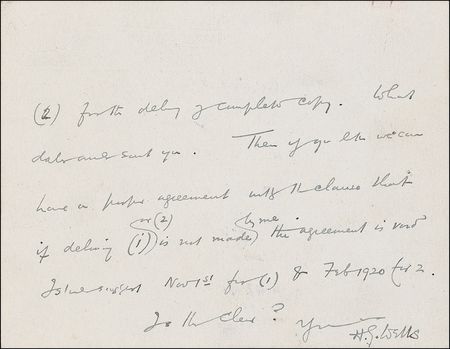 (2) for the delivery of complete copy. What
dates suit you. Then if you like we can
have a proper agreement with the clause that
or (2) by me
if delivery (1) is not made the agreement is void
suggest Nov 1st for (1) & Feb 1920 for 2.
Is clear? Yours
H.G. Wells